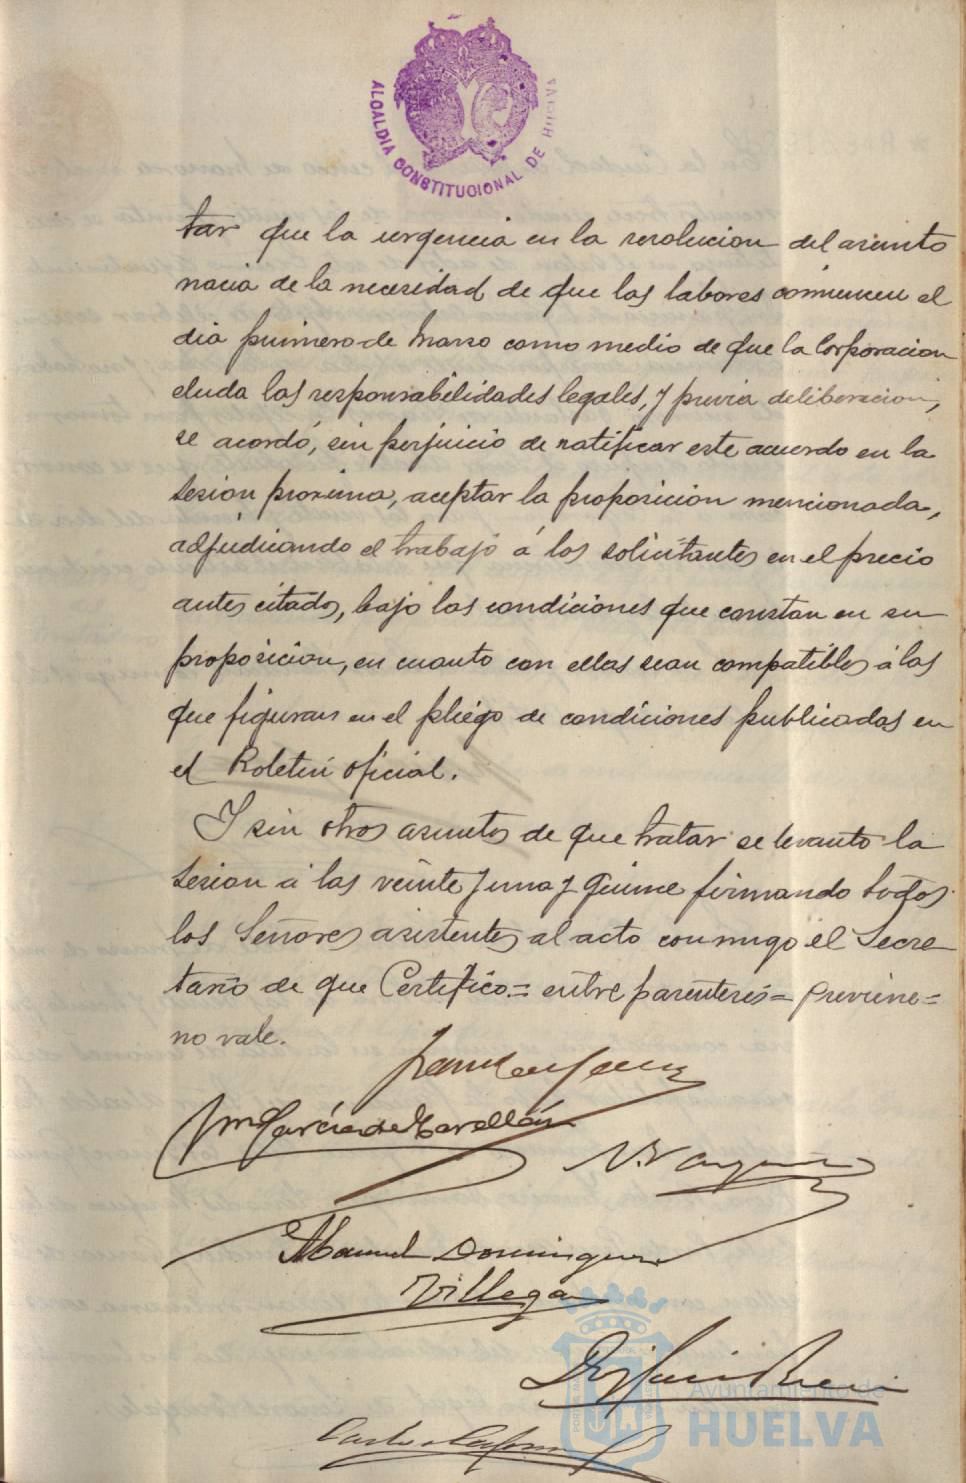 ALCALDIA CONSTITUCIONAL DE HUELVA
tar que la urgencia en la resolucion del asunto
nacia de la necesidad de que las labores comiencen el
dia primero de Marzo como medio de que la Corporacion
eluda las responsabilidades legales, y previa deliberacion,
se acordó, sin perjuicio de ratificar este acuerdo en la
sesion proxima, aceptar la proposicion mencionada,
adjudicando el trabajo á los solicitantes en el precio
antes citados, bajo las condiciones que constan en su
proposicion, en cuanto con ellas sean compatibles á las
que figuran en el pliego de condiciones publicadas en
el Boletin oficial.
Y sin otros asuntos de que tratar se levanto la
sesion á las veinte y una y quince firmando todos
los Señores asistentes al acto conmigo el Secre
tario de que Certifico.= entre parentesis= previene=
no vale.
Garcia de
N. Vazquez
Manuel Dominguez
Villegas
Ayuntamiento de
HUELVA